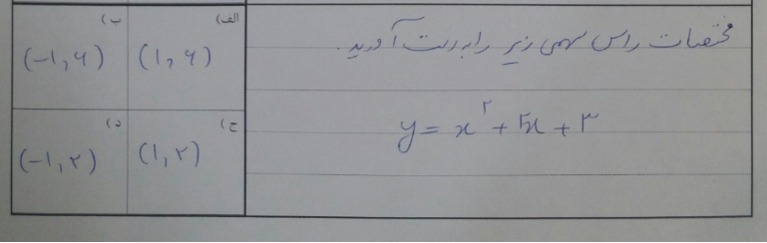 مختصات راس سهمی زیر را بدست آورید.
y = x² + ۲x + ۳
الف) (۱, ۶)
ب) (-۱, ۶)
ج) (۱, ۲)
د) (-۱, ۲)